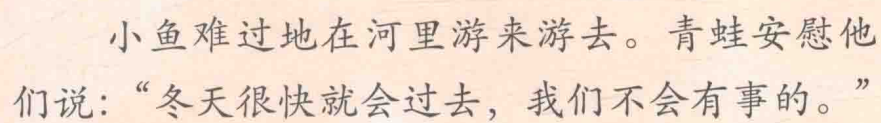 小鱼难过地在河里游来游去。青蛙安慰他
们说：“冬天很快就会过去，我们不会有事的。”